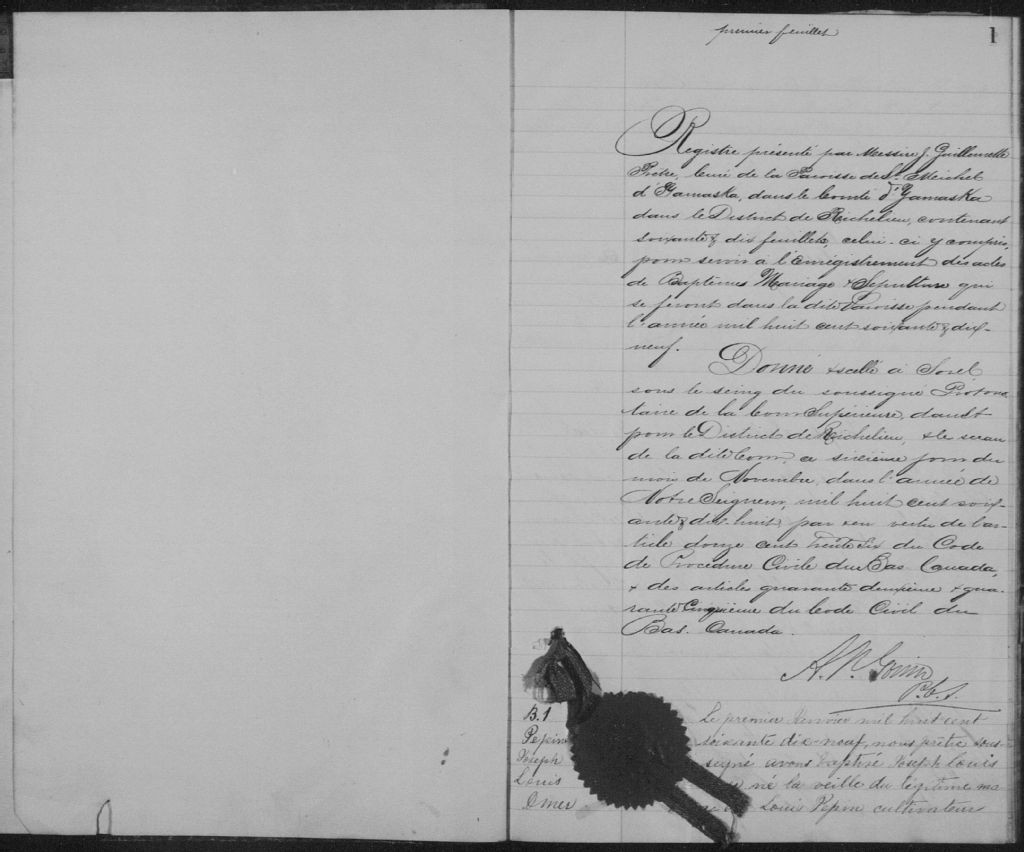 premier feuillet
1
Registre présenté par Messire J. Guillemette
Prêtre, Curé de la Paroisse de St. Michel
d'Yamaska, dans le Comté d'Yamaska
dans le District de Richelieu, contenant
soixante & dix feuillets, celui-ci y compris,
pour servir à l'Enrégistrement des actes
de Baptêmes Mariage & Sépulture qui
se feront dans la dite Paroisse pendant
l'année mil huit cent soixante & dix-
neuf.
Donné & scellé à Sorel
sous le seing du soussigné Protono
taire de la Cour Supérieure, dans &
pour le District de Richelieu, & le sceau
de la dite Cour, ce sixième jour du
mois de Novembre, dans l'année de
Notre Seigneur, mil huit cent soix-
ante & dix-huit, par & en vertu de l'ar-
ticle douze cent trente six du Code
de Procédure Civile du Bas Canada,
& des articles quarante deuxième & qua-
rante cinquième du Code Civil du
Bas-Canada.
A. N. Gouin
P.C.S.
B.1
Pepin
Joseph
Louis
Omer
Le premier Janvier mil huit cent
soixante dix-neuf, nous prêtre sous-
signé avons baptisé Joseph Louis
né la veille du légitime ma
Louis Pepin cultivateur